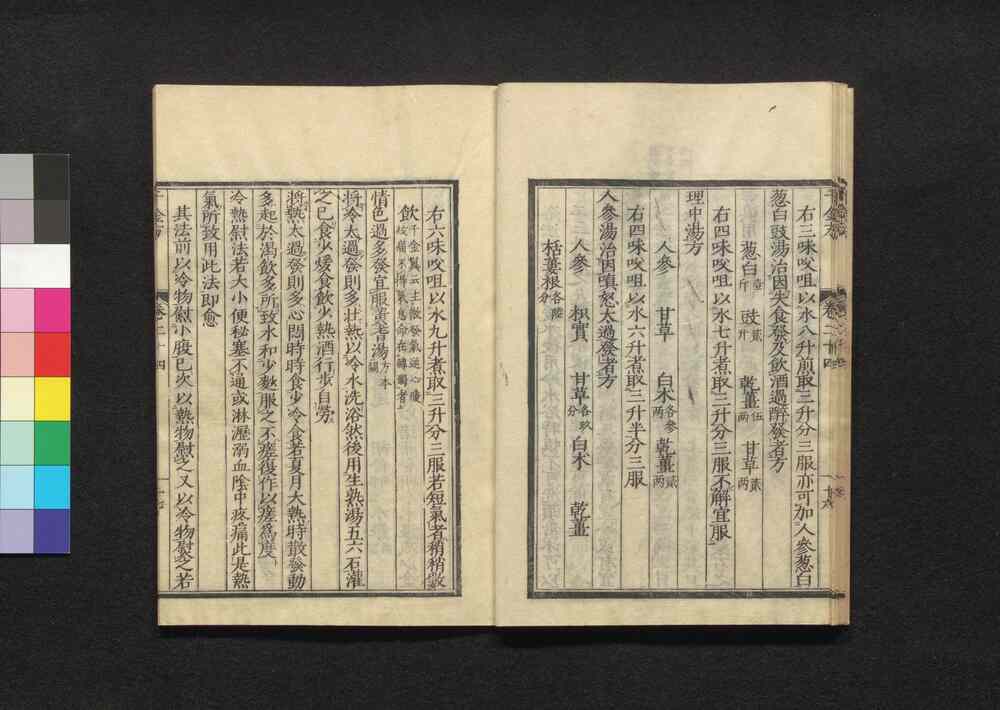 右三味㕮咀以水八升煎取三升分三服亦可加人參葱白
葱白豉湯治因失食發及飲酒過醉發者方
葱白壹斤 豉貳升 乾薑伍两 甘草貳两
右四味㕮咀以水七升煮取三升分三服不解宜服
理中湯方
人參 甘草 白术各參两 乾薑貳两
右四味㕮咀以水六升煮取三升半分三服
人參湯治因嗔怒太過發者方
人參 枳實 甘草各玖分 白术 乾薑
栝蔞根各陸分
千金方 卷二十四 廿六
右六味㕮咀以水九升煮取三升分三服若短氣者稍稍數
飲千金翼云主散發氣逆心腹
絞痛不得氣息命在轉燭者
情色過多發宜服黃耆湯方本闕
將冷太過發則多壮熱以冷水洗浴然後用生熟湯五六石灌
之已食少煖食飲少熱酒行步自勞
將熱太過發則多心悶時時食少冷食若夏月大熱時散發動
多起於渴飲多所致水和少麨服之不瘥復作以瘥為度
冷熱熨法若大小便秘塞不通或淋瀝溺血陰中疼痛此是熱
氣所致用此法即愈
其法前以冷物熨小腹已次以熱物熨之又以冷物熨之若
千金方 卷二十四